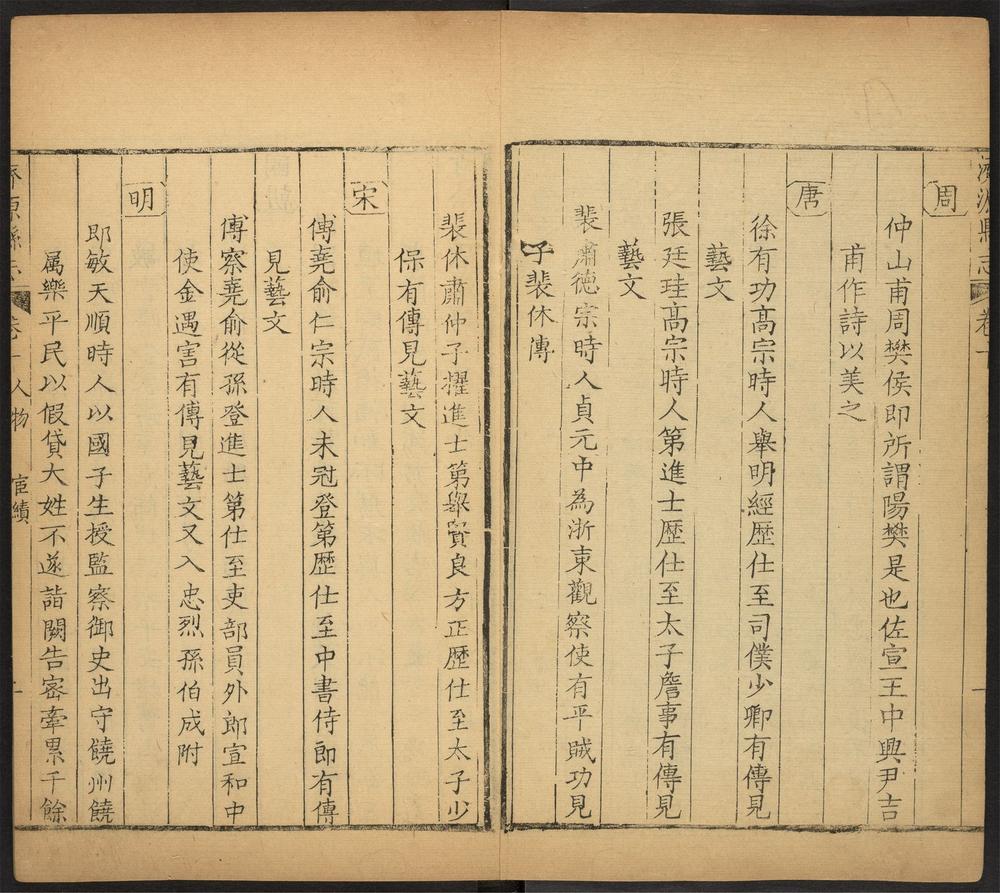 濟源縣志 卷十 一
周
仲山甫周樊侯即所謂陽樊是也佐宣王中興尹吉
甫作詩以美之
唐
徐有功高宗時人舉明經歷仕至司僕少卿有傳見
藝文
張廷珪高宗時人第進士歷仕至太子詹事有傳見
藝文
裴肅德宗時人貞元中為浙東觀察使有平賊功見
子裴休傳
裴休肅仲子擢進士第舉賢良方正歷仕至太子少
保有傳見藝文
宋
傅堯俞仁宗時人未冠登第歷仕至中書侍郎有傳
見藝文
傅察堯俞從孫登進士第仕至吏部員外郎宣和中
使金遇害有傳見藝文又入忠烈孫伯成附
明
郎敏天順時人以國子生授監察御史出守饒州饒
属樂平民以假貸大姓不遂詣闕告密牽累千餘
濟源縣志 卷十 人物 宦績